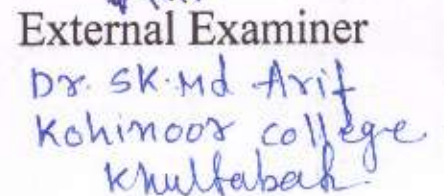 External Examiner
Dr. SK. Md Arif
Kohinoor college
Khultabad